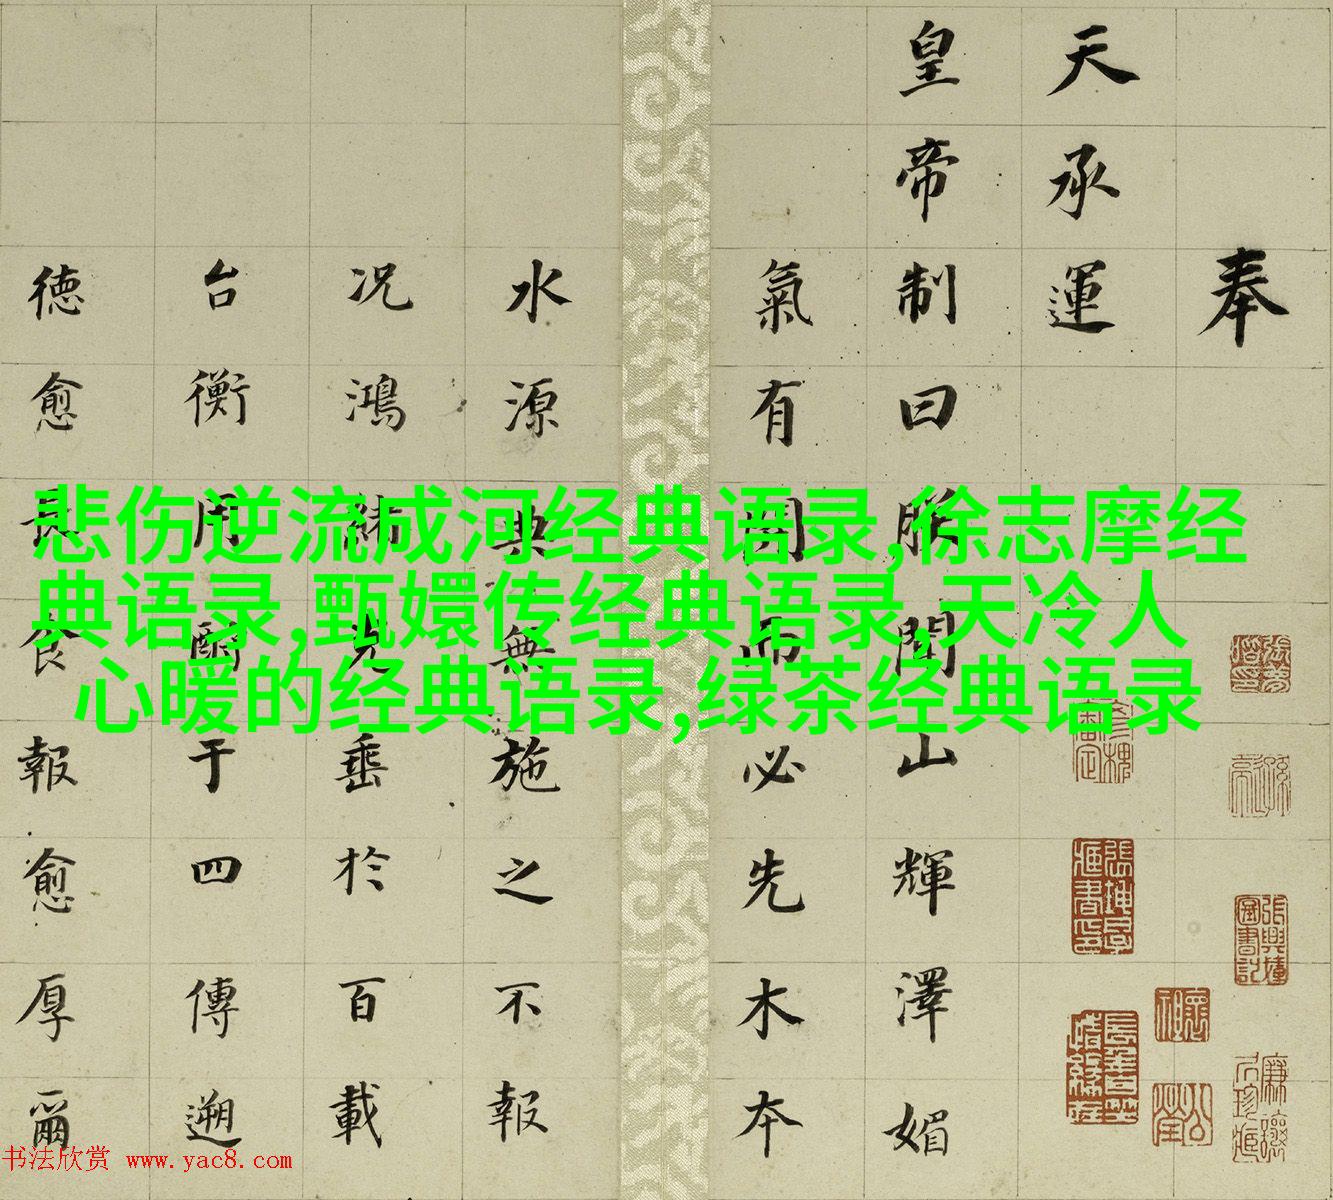 奉
天承運
皇帝制曰朕聞山輝澤媚
氣有開而必先木本
水源典無施之不報
况鴻緒光垂於百載
台衡用酬于四傳遡
德愈長食報愈厚爾
悲伤逆流成河经典语录,徐志摩经
典语录,甄嬛传经典语录,天冷人
心暖的经典语录,绿茶经典语录
书法欣赏 www.yac8.com